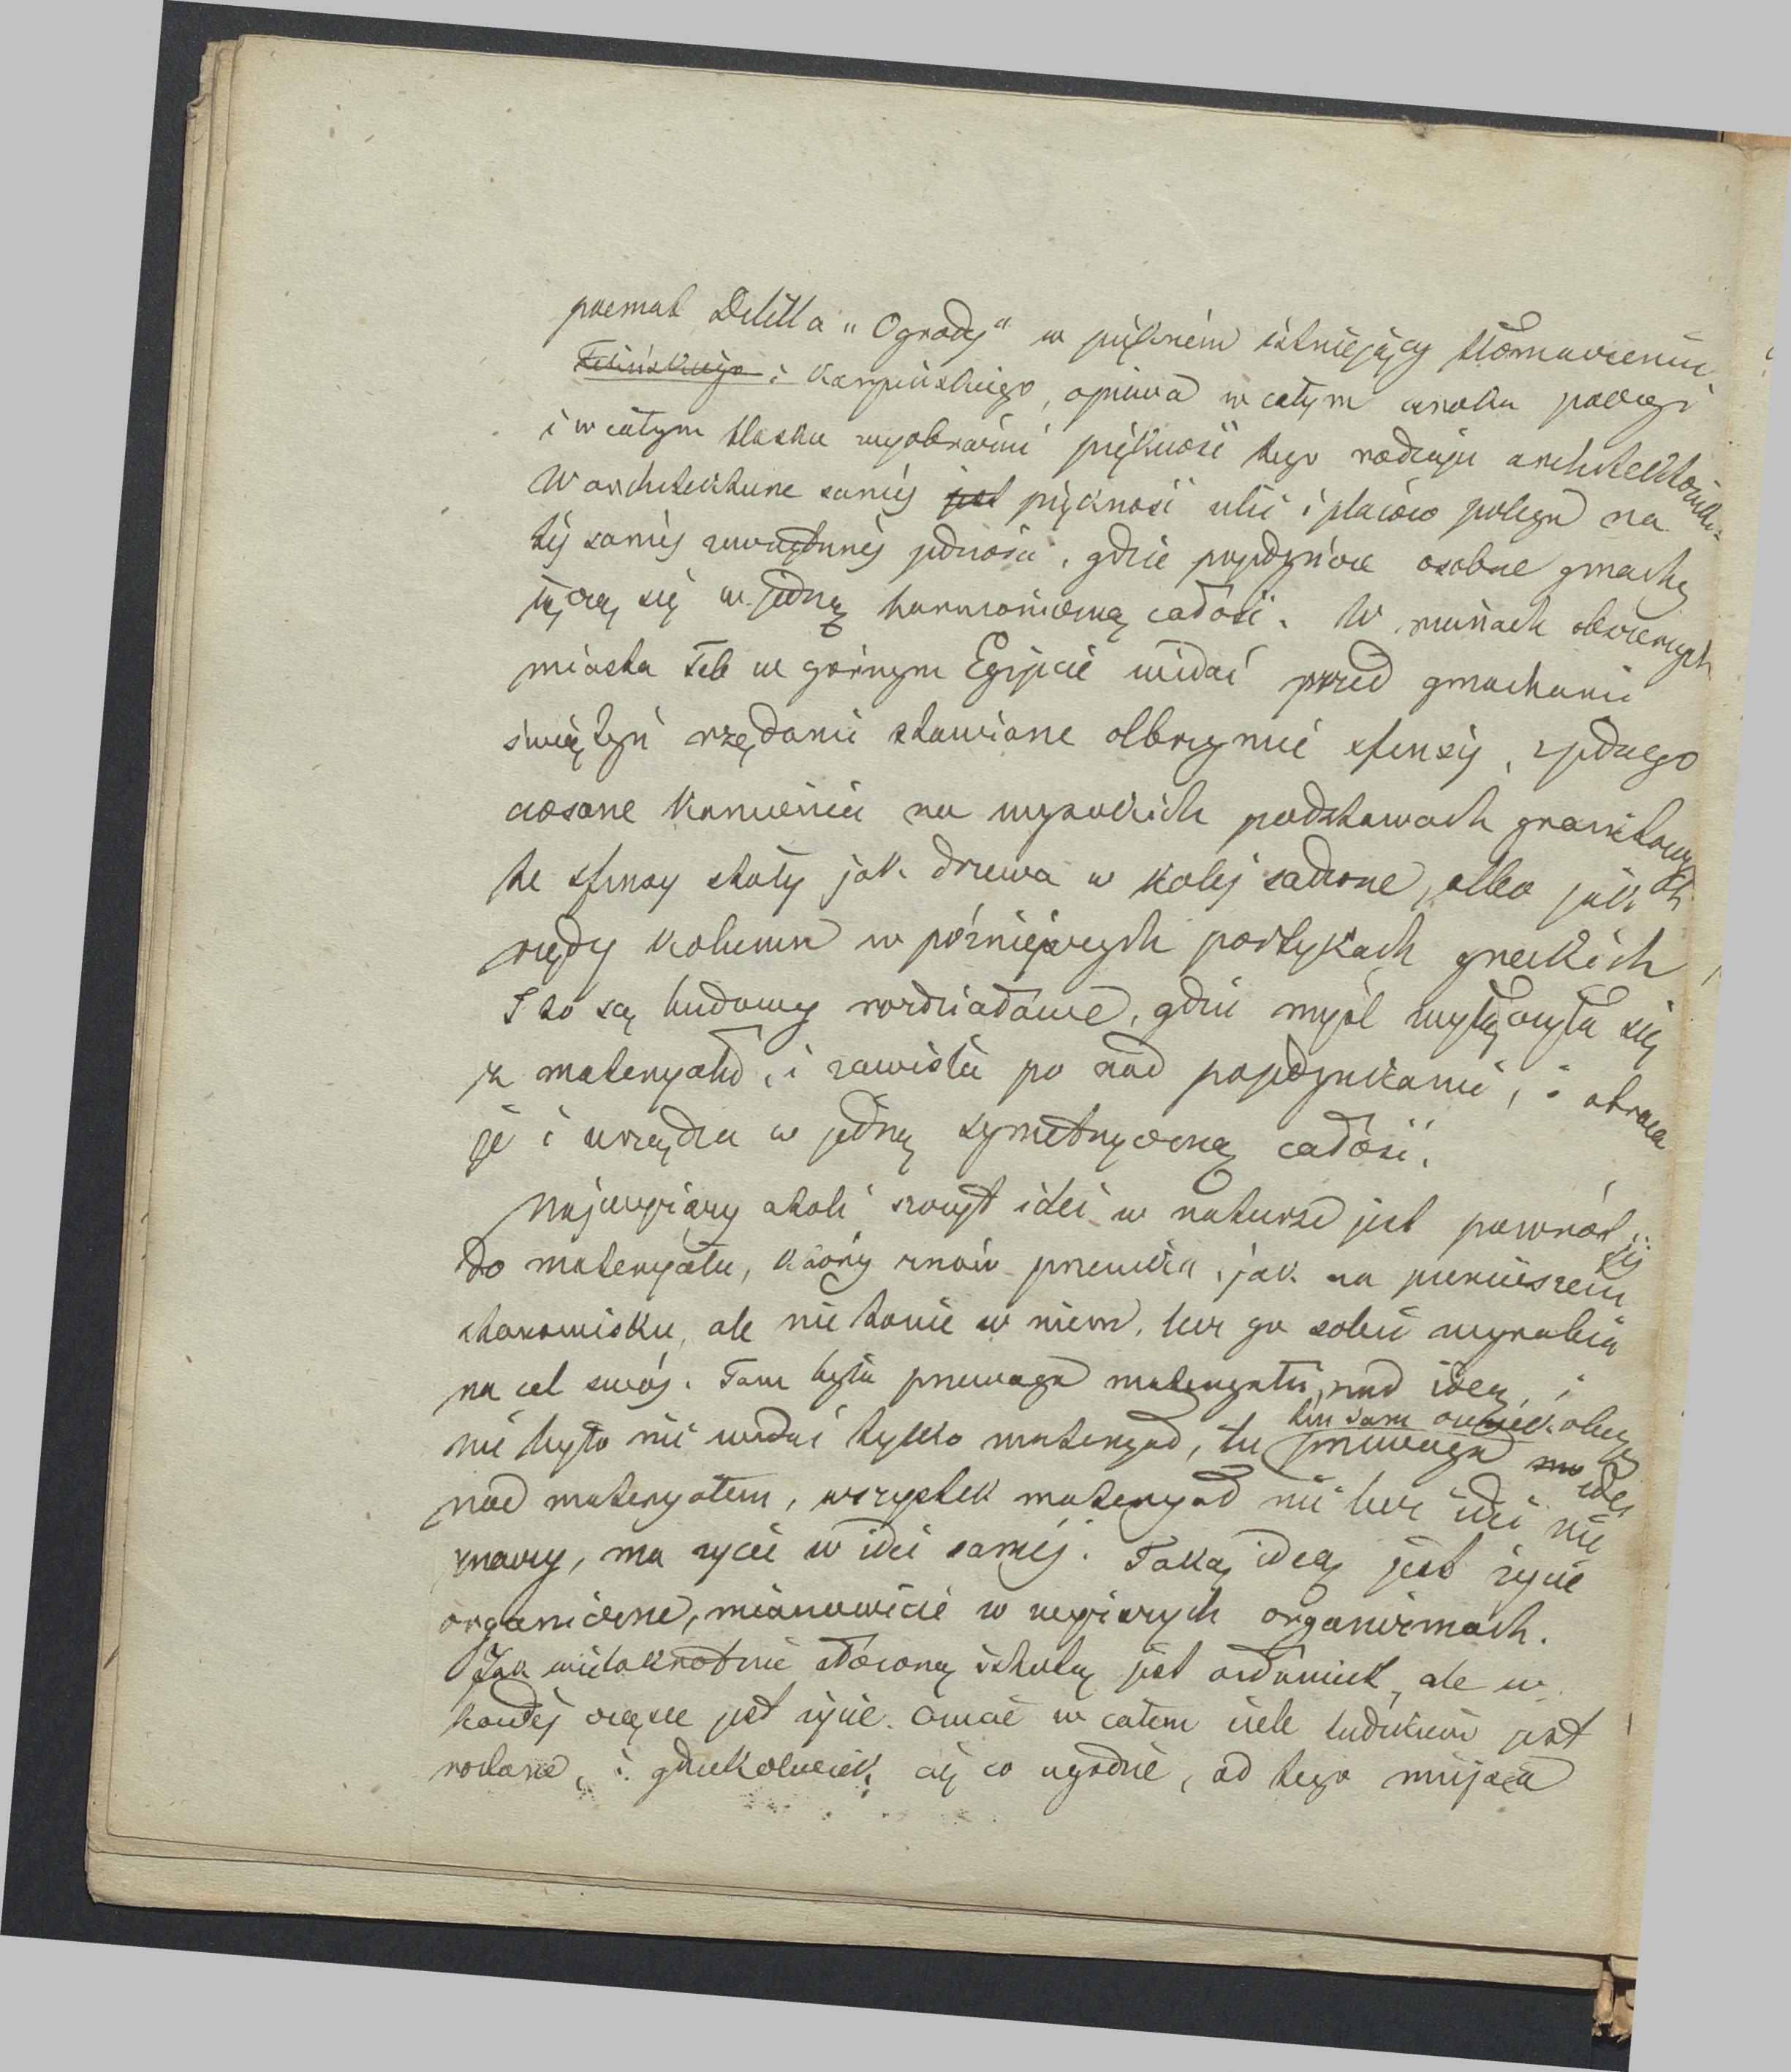 poemat Delilla „Ogrody" w pięknem istniejący tłomaczeniu
Felińskiego i Karpińskiego, opiewa w całym uroku poezyi
i w całym blasku wyobraźni piękność tego rodzaju architektoniki.
W architekturze samej jest piękność ulic i placów polega na
tej samej zewnętrznej jedności, gdzie pojedyńcze osobne gmachy
łączą się w jedną harmoniczną całość. W ruinach obszernych
miasta Teb w górnym Egipcie widać przed gmachami
świątyń rzędami stawiane olbrzymie sfinxy, z jednego
ciosane kamienia na wysokich podstawach granitowych
te sfinxy stały jak drzewa w kolej sadzone, albo jak
rzędy kolumn w późniejszych portykach greckich
I to są budowy rozdziałowe, gdzie myśl wyłączyła się
z materyału, i zawisła po nad pojedynkami, i obraca
je i urządza w jedną symetryczną całość.
Najwyższy atoli szczyt idei w naturze jest powrót jej
do materyału, który znów przenika, jak na pierwszem
stanowisku, ale nie tonie w niem, lecz go sobie wyrabia
na cel swój. Tam była przewaga materyału nad ideą, i
nie było nic widać tylko materyał, tu przewaga idei
nad materyałem, wszystek materyał nic bez idei nie
znaczy, ma życie w idei samej. Taką ideą jest życie
organiczne, mianowicie w wyższych organizmach.
Jak wielokrotnie złożoną istotą jest człowiek, ale w
każdej cząstce jest życie. Czucie w całem ciele ludzkiem jest
rozlane, i gdziekolwiek cię co ugodzie, od tego miejsca